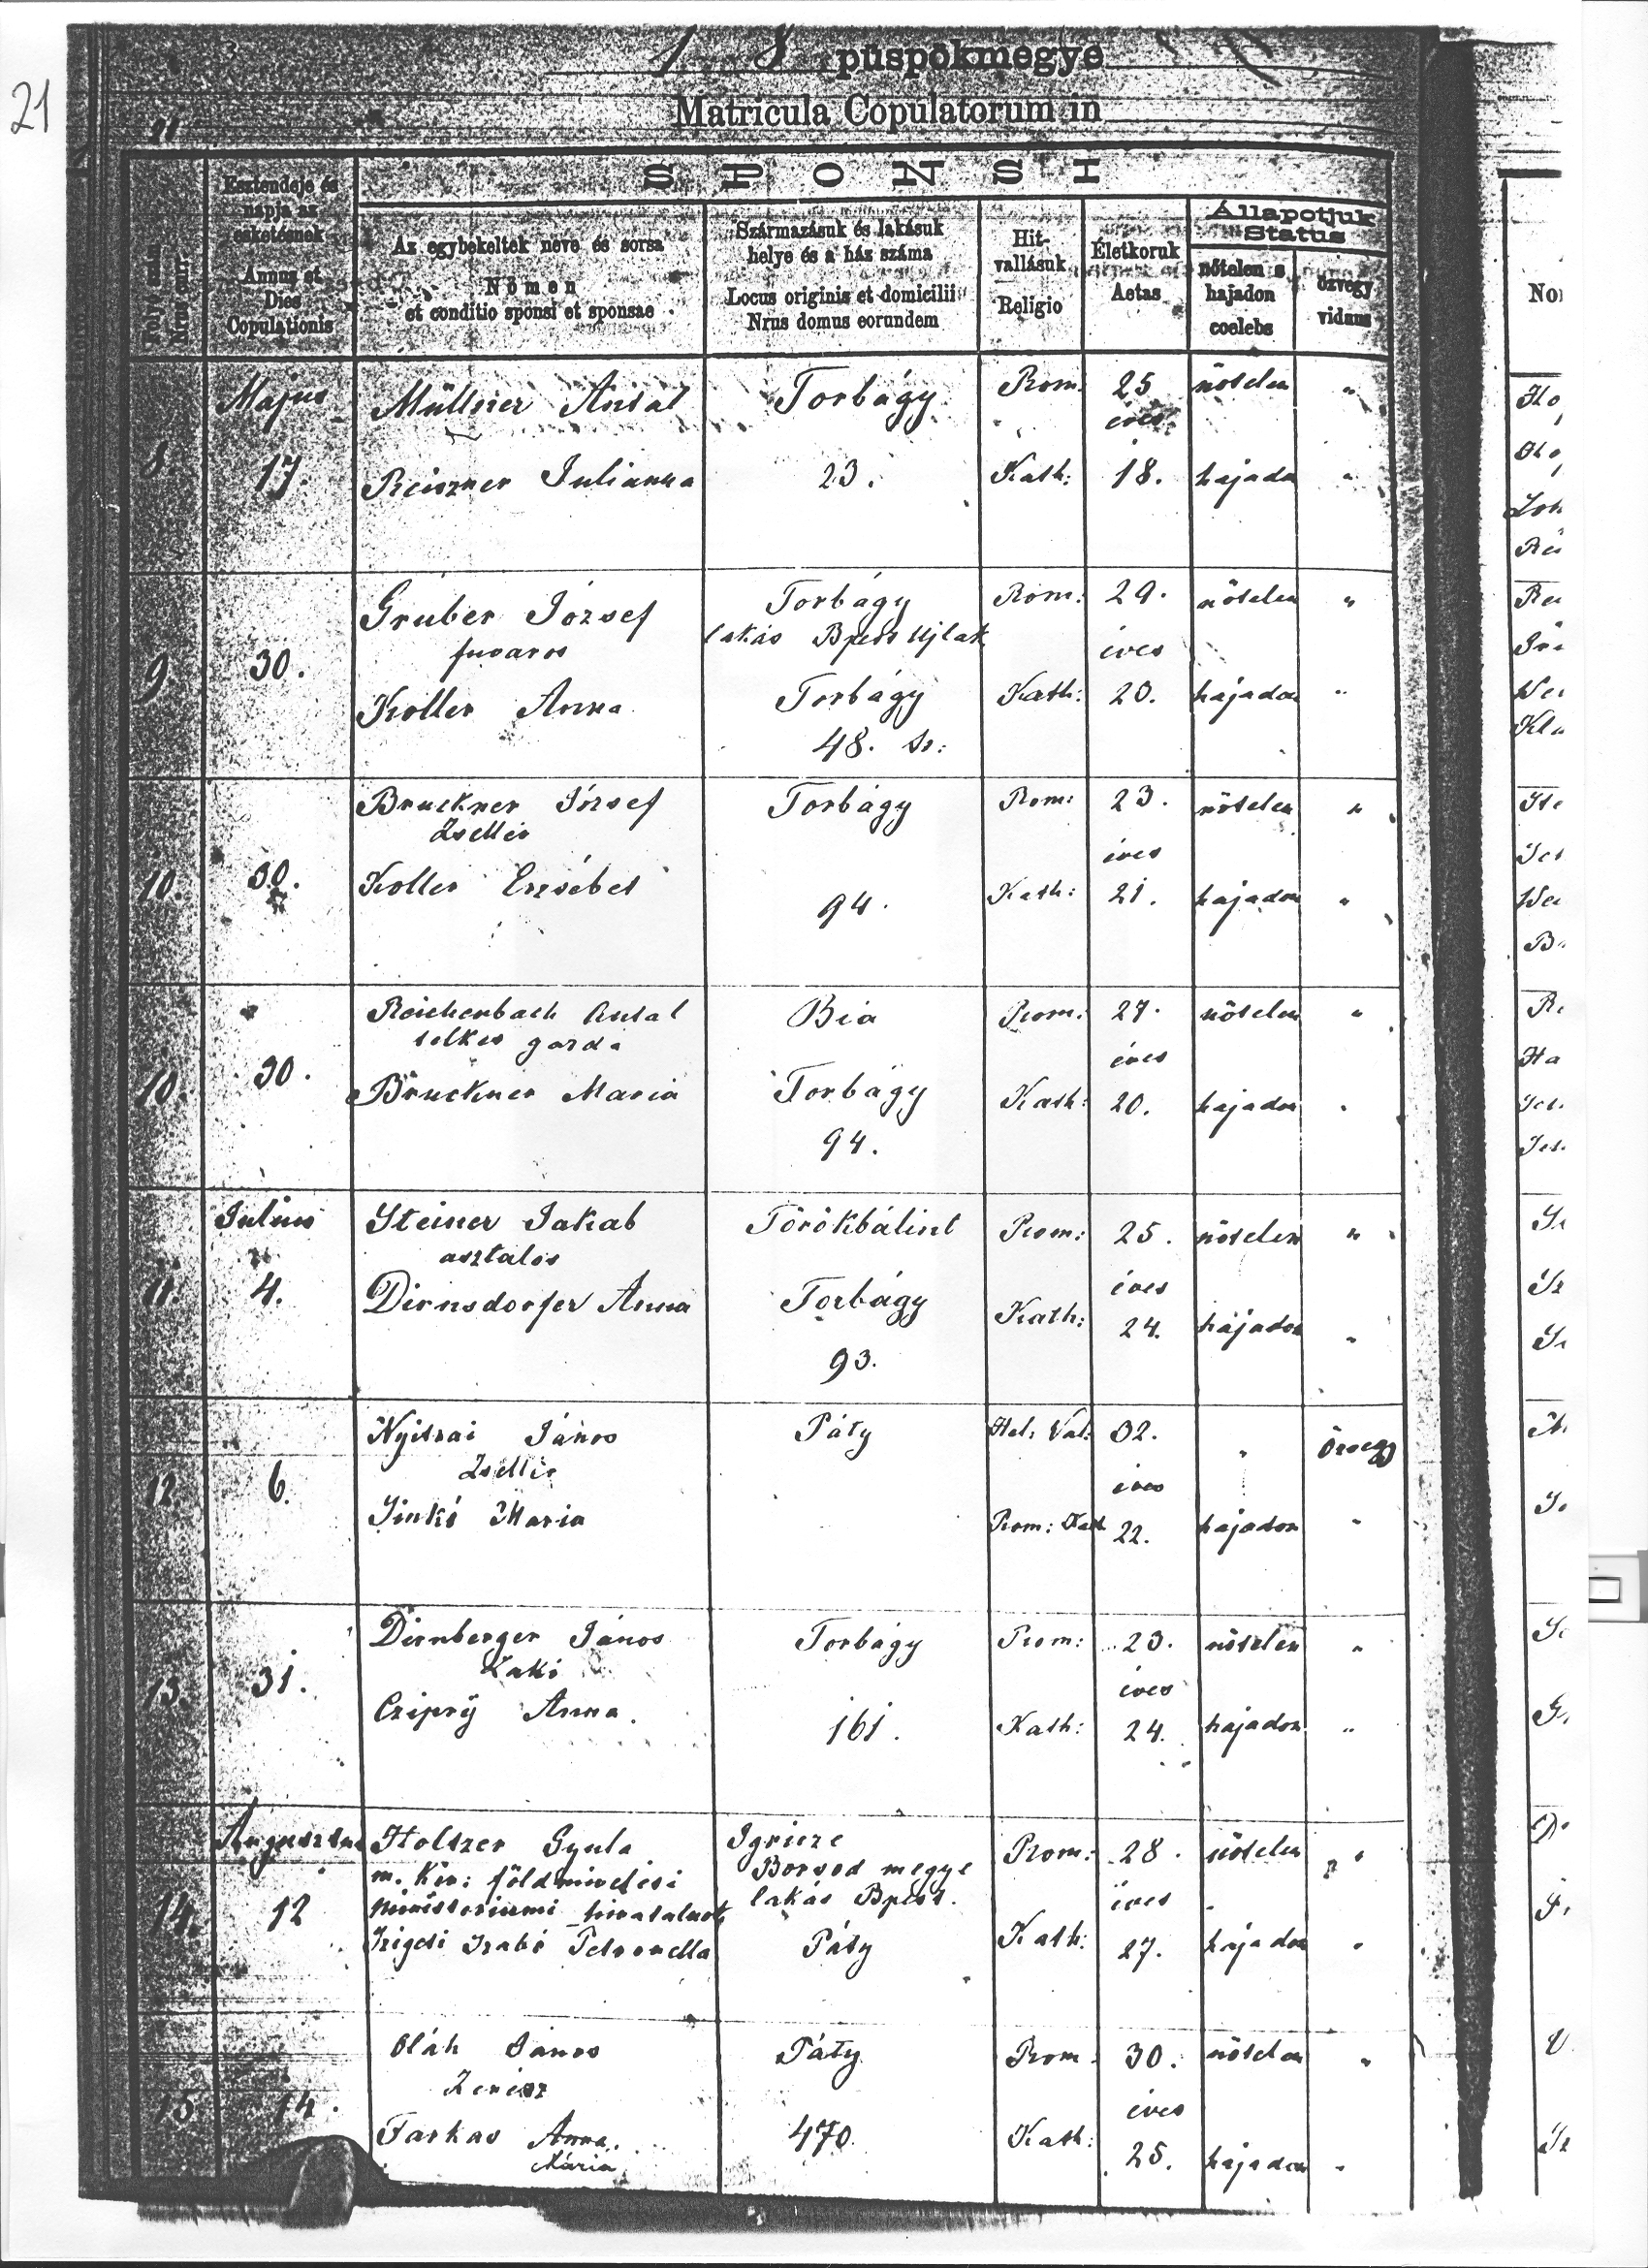 21
1 8 püspökmegye
Matricula Copulatorum in
21
SPONSI
Esztendeje és
napja az
esketésnek
Annus et
Dies
Copulationis
Az egybekeltek neve és sorsa
Nomen
et conditio sponsi et sponsae
Származásuk és lakásuk
helye és a ház száma
Locus originis et domicilii
Nrus domus eorundem
Hit-
vallásuk
Religio
Életkoruk
Aetas
Állapotjuk
Status
nőtelen s
hajadon
coelebs
özvegy
viduus
Május Müllner Antal Torbágy Rom. 25 nőtelen "
éves
8. 17. Reiszner Julianna 23. Kath: 18. hajadon "
Gruber József Torbágy Rom: 29. nőtelen "
fuvaros lakás Bpest Ujlak éves
9 30.
Koller Anna Torbágy Kath: 20. hajadon "
48. sz:
Bruckner József Torbágy Rom: 23. nőtelen "
Zsellér éves
10. 30. Koller Erzsébet 94. Kath: 21. hajadon "
Reichenbach Antal Bia Rom. 27. nőtelen "
telkes gazda éves
10. 30. Bruckner Maria Torbágy Kath: 20. hajadon "
94.
Julius Steiner Jakab Törökbálint Rom: 25. nőtelen "
asztalos éves
11. 4. Dirnsdorfer Anna Torbágy Kath: 24. hajadon "
93.
Nyitrai János Páty Hel: Val: 32. " özvegy
Zsellér éves
12 6. Sinkó Maria Rom: Kath 22. hajadon "
Dirnberger János Torbágy Rom: 23. nőtelen "
Lakó éves
13. 31. Czipry Anna 161. Kath: 24. hajadon "
Augusztus Holtzer Gyula Igricze Rom: 28. nőtelen "
m. kir: földmivelési Borsod megye
ministeriumi hivatalnok lakás Bpest. éves
14. 12 Szigeti Szabó Petronella Páty Kath: 27. hajadon "
Oláh János Páty Rom. 30. nőtelen "
Zenész éves
15 14. Farkas Anna 470. Kath: 25. hajadon "
Mária